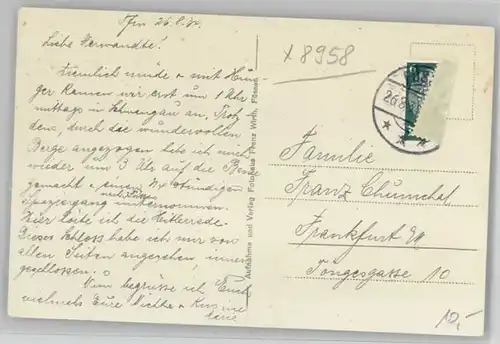 Ffm 26.8.
Liebe Verwandte!
Ziemlich müde + mit Hun-
ger kamen wir erst um 1 Uhr
mittags in Schwangau an. Trotz
dem, durch die wundervollen
Berge angezogen habe ich mich
wieder um 3 Uhr auf die Bein
gemacht + einen stündigen
Spaziergang unternommen.
Dieses Schloss habe ich nur von
allen Seiten angesehen,
geschlossen.
Nun begrüsse ich Euch
vielmals Eure
x 8958
Aufnahme und Verlag Fotohaus Franz Wirth, Füssen
26.8
Familie
Franz
Frankfurt a/M
Töngesgasse 10
10,-